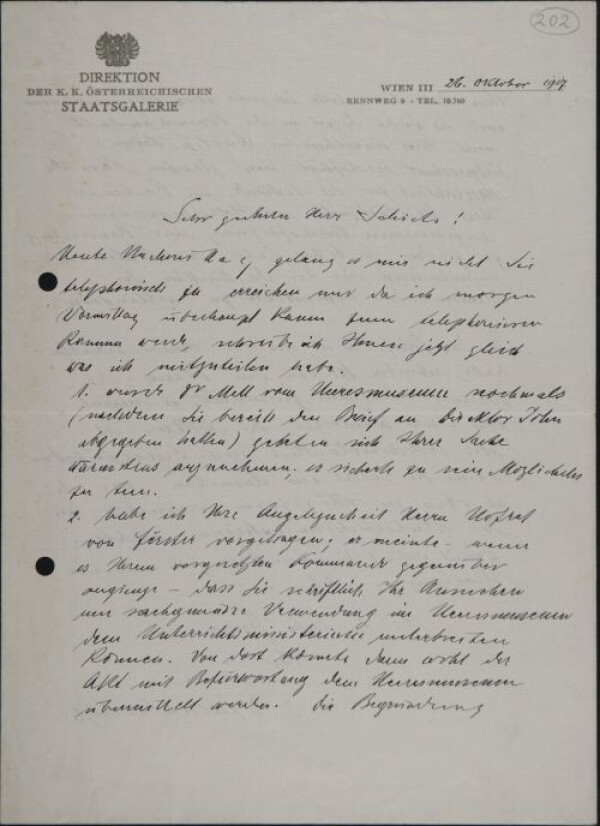 202
DIREKTION
DER K. K. ÖSTERREICHISCHEN
STAATSGALERIE
WIEN III 26. Oktober 1917
RENNWEG 6 - TEL. 10.760
Sehr geehrter Herr Schiele!
Heute Nachmittag gelang es mir nicht Sie
telephonisch zu erreichen und da ich morgen
Vormittag überhaupt kaum zum telephonieren
kommen werde, schreibe ich Ihnen jetzt gleich
was ich mitzuteilen habe.
1. wurde Dr Mell vom Heeresmuseum nochmals
(nachdem Sie bereits den Brief an Direktor John
abgegeben hatten) gebeten sich Ihrer Sache
wärmstens anzunehmen; er sicherte zu sein Möglichstes
zu tun.
2. habe ich Ihre Angelegenheit Herrn Hofrat
von Förster vorgetragen; er meinte - wenn
es Ihrem vorgesetzten Kommando gegenüber
angienge - dass Sie schriftlich Ihr Ansuchen
um sachgemässe Verwendung im Heeresmuseum
dem Unterrichtsministerium unterbreiten
können. Von dort könnte dann wohl der
Akt mit Befürwortung dem Heeresmuseum
übermittelt werden. Die Begründung